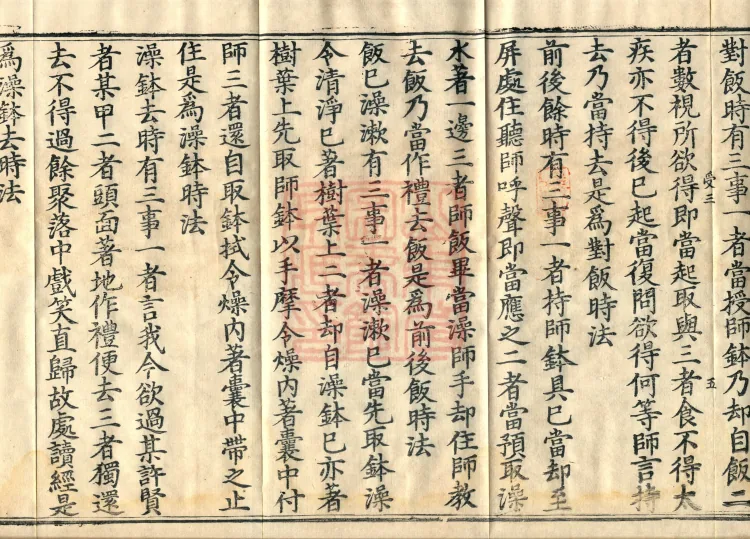 對飯時有三事一者當授師鉢乃却自飯二
者數視所欲得即當起取與三者食不得太
疾亦不得後已起當復問欲得何等師言持
去乃當持去是爲對飯時法
前後餘時有三事一者持師鉢具已當却至
屏處住聽師呼聲即當應之二者當預取澡
水著一邊三者師飯畢當澡師手却住師教
去飯乃當作禮去飯是爲前後飯時法
飯已澡漱有三事一者澡漱已當先取鉢澡
令清淨已著樹葉上二者却自澡鉢已亦著
樹葉上先取師鉢以手摩令燥内著囊中付
師三者還自取鉢拭令燥内著囊中帶之止
住是爲澡鉢時法
澡鉢去時有三事一者言我今欲過某許賢
者某甲二者頭面著地作禮便去三者獨還
去不得過餘聚落中戲笑直歸故處讀經是
爲澡鉢去時法
受三
五